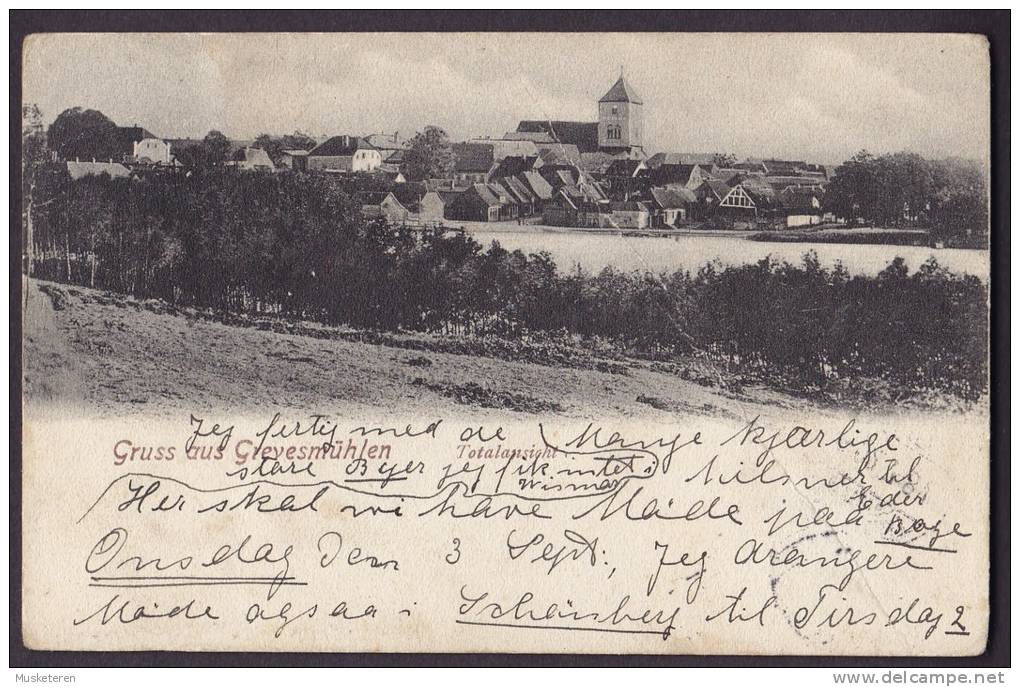 Jeg fertig med de Mange kjærlige
Gruss aus Grevesmühlen
Totalansicht
store Byer jeg fik intet i hilsner til
Wismar Eder
Her skal wi have Möde paa Bage
Onsdag Den 3 Sept., Jeg arangere
Möde ogsaa i Schönberg til Tirsdag 2
Musketeren
www.delcampe.net